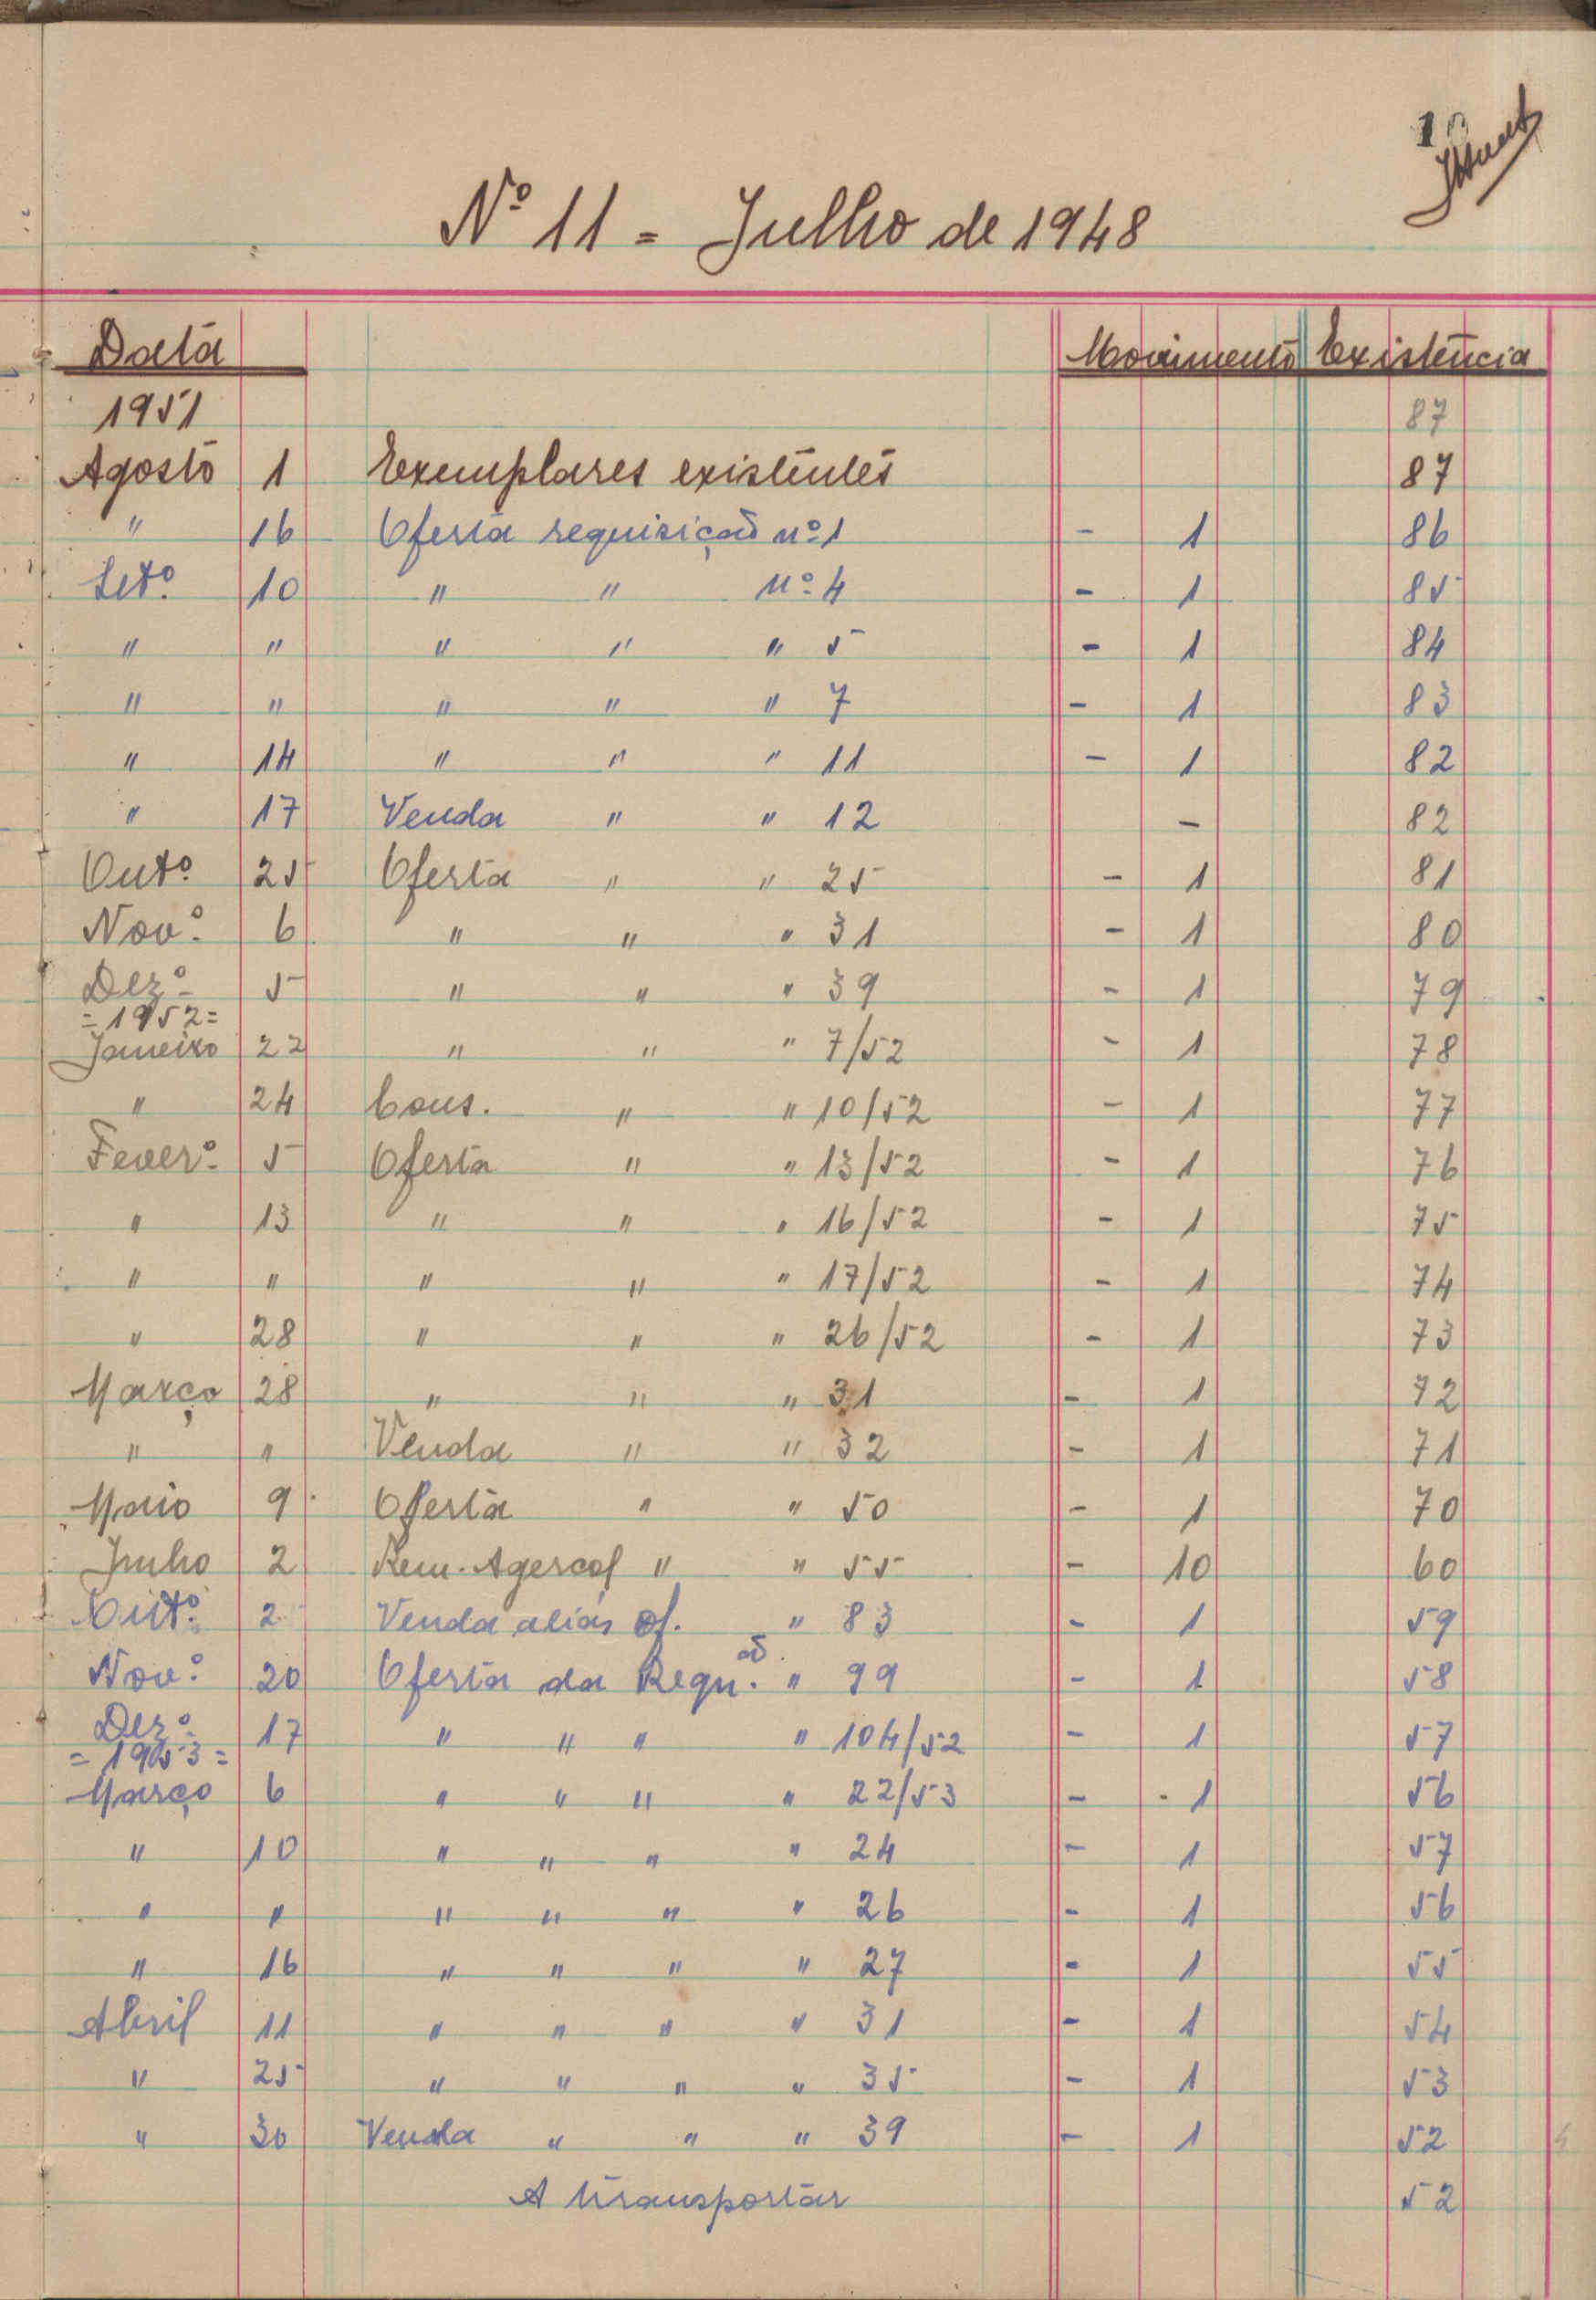 10
Nº 11 = Julho de 1948
Data Movimento Existência
1951 87
Agosto 1 Exemplares existentes 87
" 16 Oferta requisição nº 1 - 1 86
Setº 10 " " Nº 4 - 1 85
" " " " " 5 - 1 84
" " " " " 7 - 1 83
" 14 " " " 11 - 1 82
" 17 Venda " " 12 - 82
Outº 25 Oferta " " 25 - 1 81
Novº 6 " " " 31 - 1 80
Dezº 5 " " " 39 - 1 79
= 1952 =
Janeiro 22 " " " 7/52 - 1 78
" 24 Cons. " " 10/52 - 1 77
Feverº 5 Oferta " " 13/52 - 1 76
" 13 " " " 16/52 - 1 75
" " " " " 17/52 - 1 74
" 28 " " " 26/52 - 1 73
Março 28 " " " 31 - 1 72
" " Venda " " 32 - 1 71
Maio 9 Oferta " " 50 - 1 70
Junho 2 Rem. Agercol " " 55 - 10 60
Outº 2 Venda aliás of. " 83 - 1 59
Novº 20 Oferta da Requ.ão " 99 - 1 58
Dezº 17 " " " " 104/52 - 1 57
= 1953 =
Março 6 " " " " 22/53 - 1 56
" 10 " " " " 24 - 1 57
" " " " " " 26 - 1 56
" 16 " " " " 27 - 1 55
Abril 11 " " " " 31 - 1 54
" 25 " " " " 35 - 1 53
" 30 Venda " " " 39 - 1 52
A transportar 52